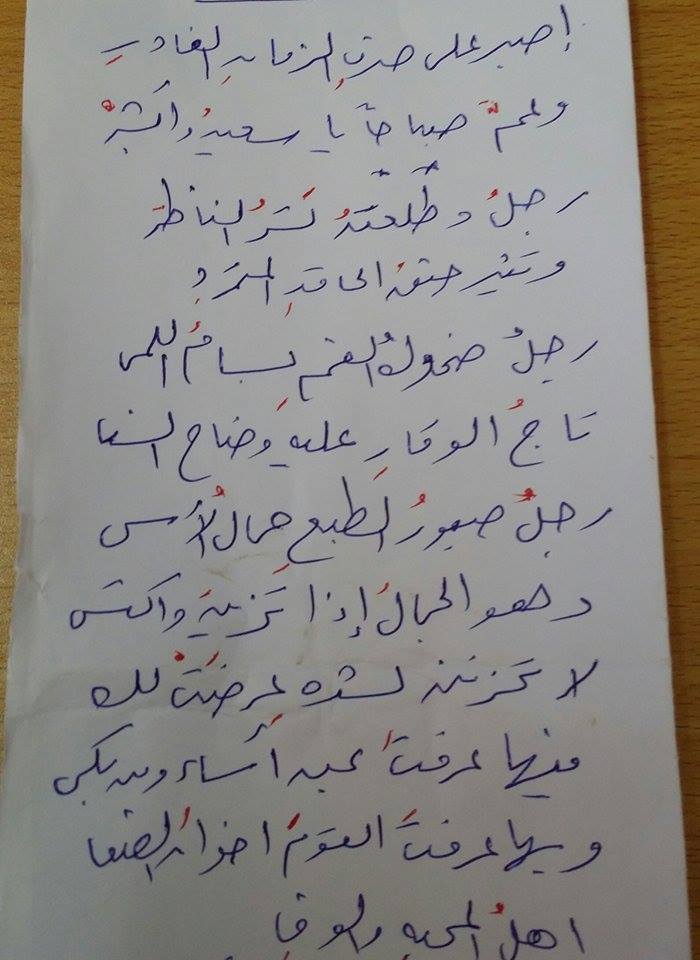 إصبر على صرفِ الزمانِ الغادرِ
وعمّ صباحاً يا سعيدُ وأبشرْ
رجلٌ وطلعتهُ تَسُرُ الناظرْ
وتثير حنقَ الحاقدِ المتمردِ
رجلٌ ضحوكُ الفم بسامُ اللمى
تاجُ الوقارِ عليهِ وضاح السنا
رجلٌ صبورُ الطبعِ حمالُ الأسى
وهو الجمالُ إذا تزينَ واكتسى
لا تحزنن لشده عرضَتْ لك
منها عرفتَ من أساء ومن بكى
وبها عرفتَ القومَ اخوانَ الصفا
اهلُ المحبه والوفا